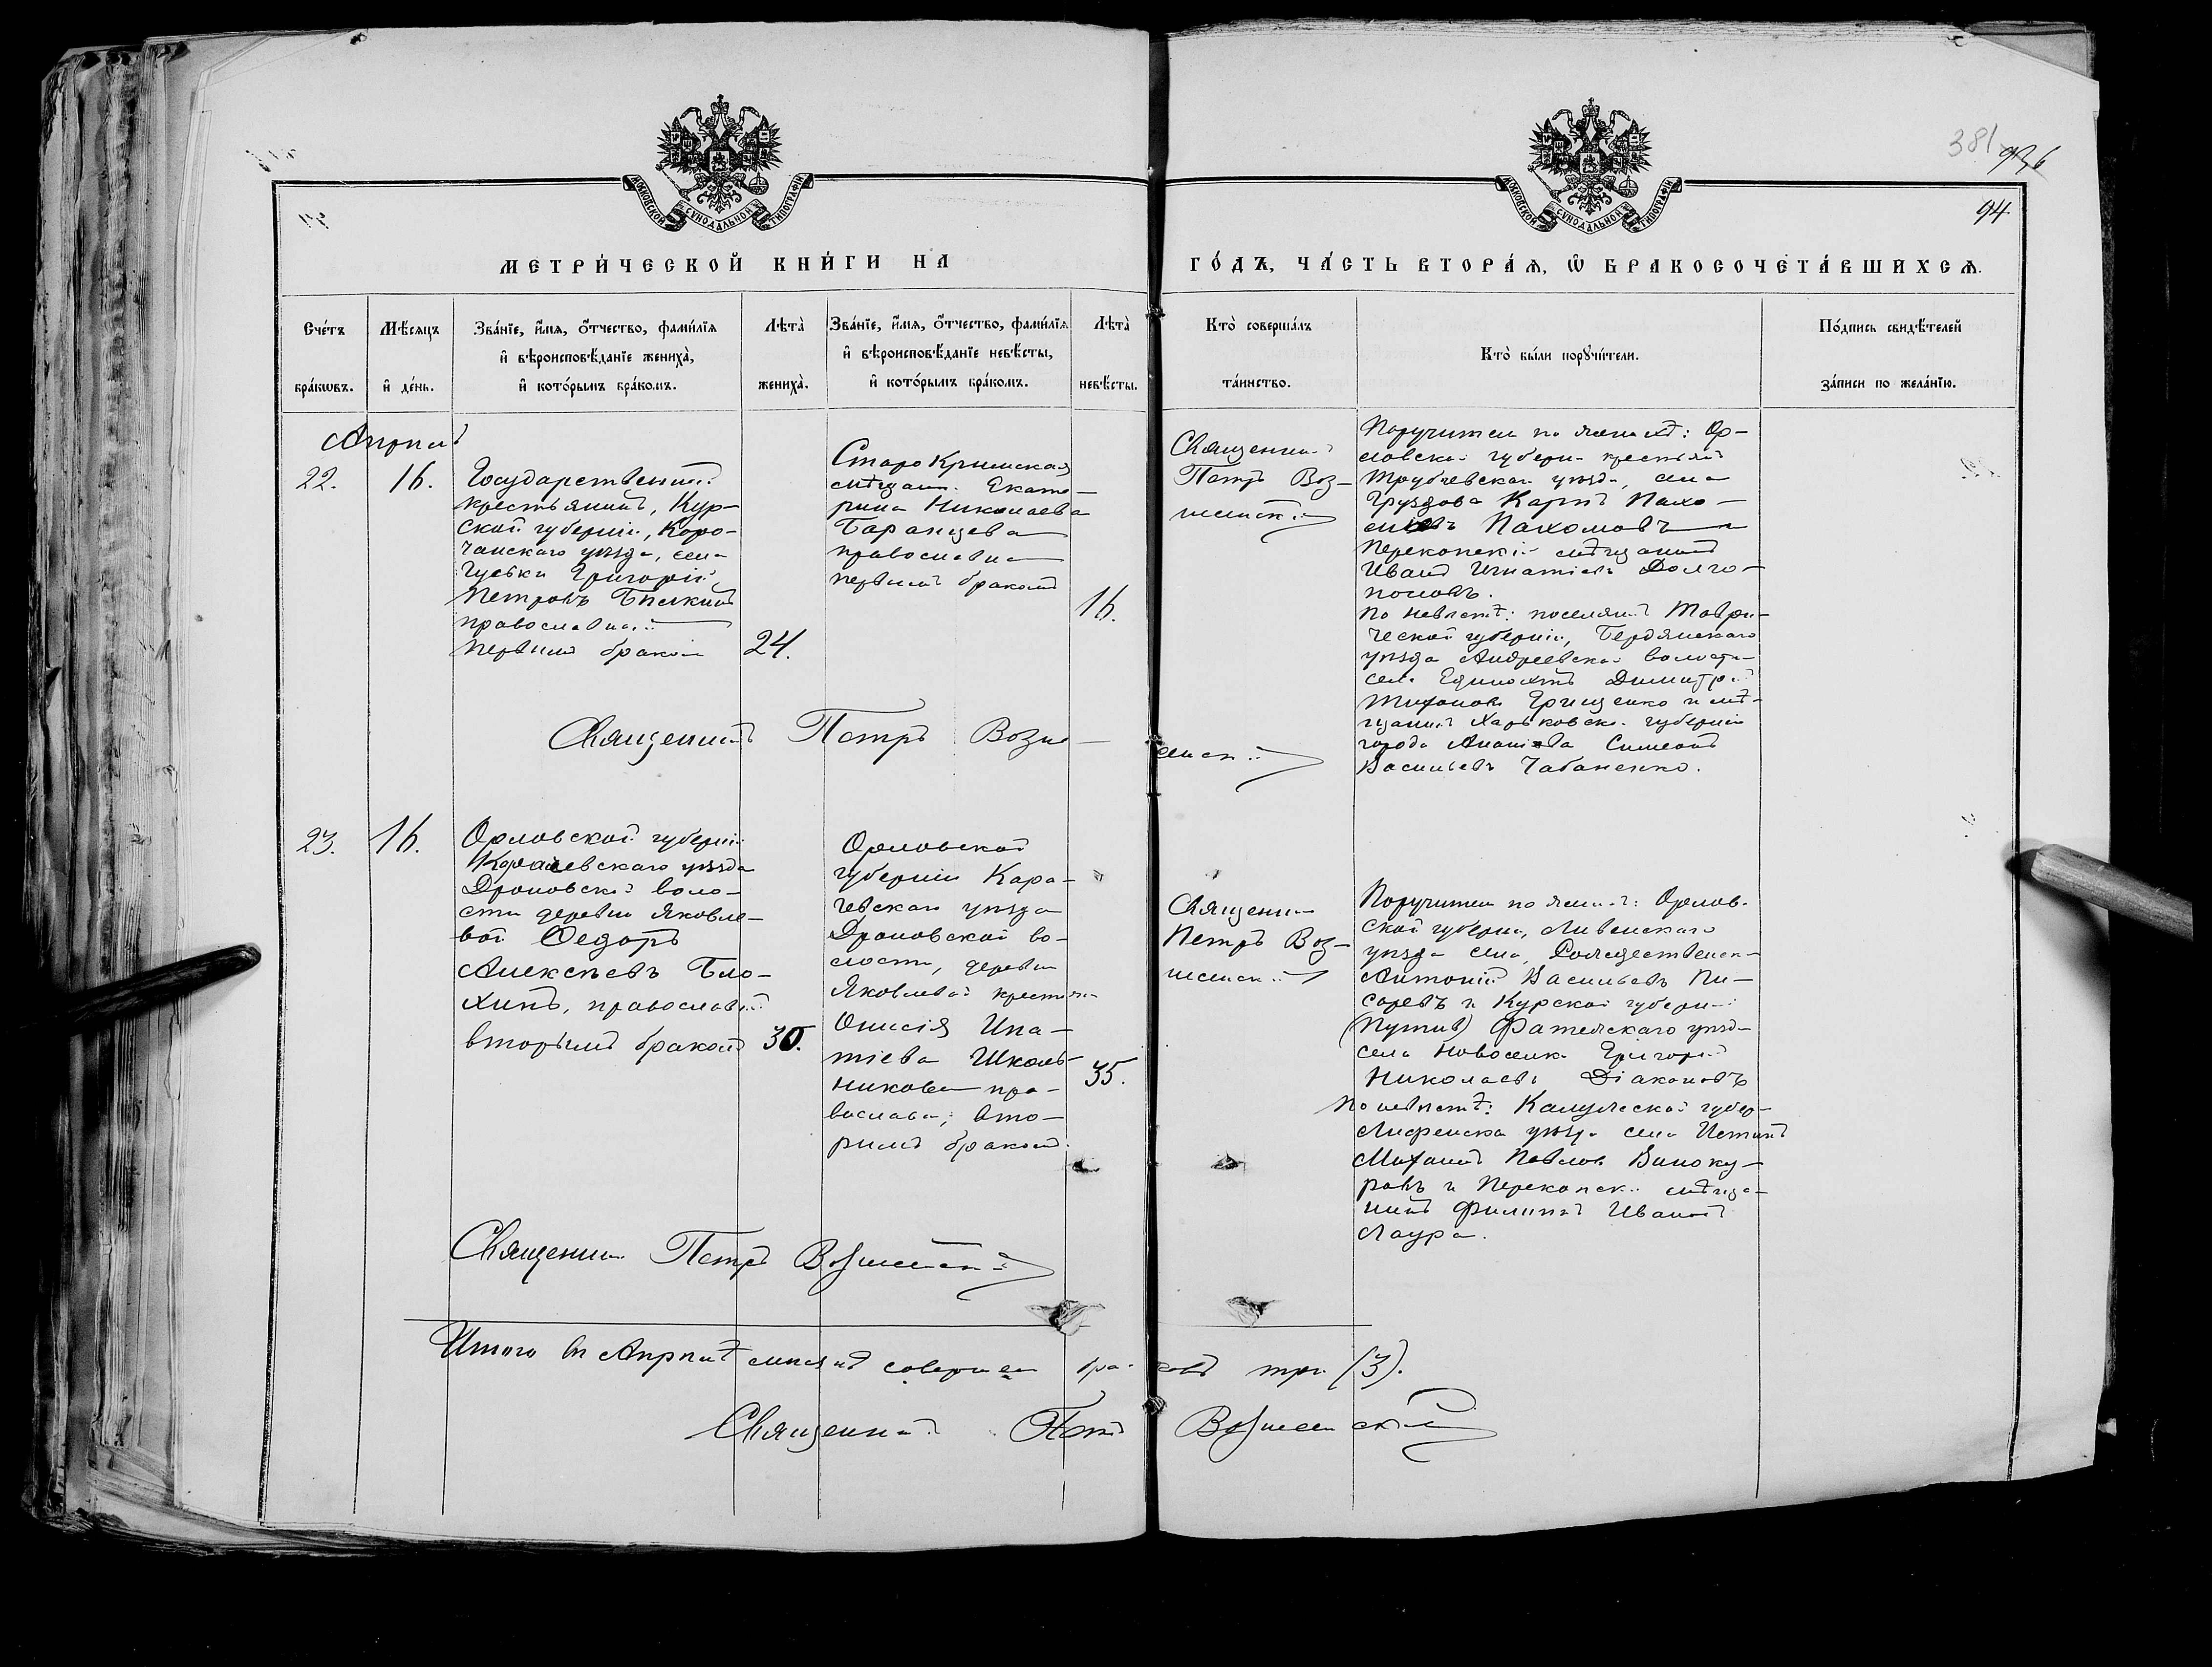 381
94
МОСКОВСКОЙ СѴНОДАЛЬНОЙ ТИПОГРАФІИ
МОСКОВСКОЙ СѴНОДАЛЬНОЙ ТИПОГРАФІИ
МЕТРИ́ЧЕСКОЙ КНИ́ГИ НА
ГО́ДЪ, ЧА́СТЬ ВТОРА́Ѧ, Ѽ БРАКОСОЧЕТА́ВШИХСѦ.
Сче́тъ бра́кѡвъ.
Мѣ́сяцъ и҆ де́нь.
Зва́нїе, и҆́мя, ѻ҆́тчество, фами́лїя
и҆ вѣроисповѣ́данїе жениха̀,
и҆ кото́рымъ бра́комъ.
Лѣта̀ жениха̀.
Зва́нїе, и҆́мя, ѻ҆́тчество, фами́лїя
и҆ вѣроисповѣ́данїе невѣ́сты,
и҆ кото́рымъ бра́комъ.
Лѣта̀ невѣ́сты.
Кто̀ соверша́лъ та́инство.
Кто̀ бы́ли порꙋчи́тели.
По́дпись свидѣ́телей за́писи по жела́нїю.
Апрѣль
22.
16.
Государственный
крестьянинъ, Кур-
ской губерніи, Коро-
чанскаго уѣзда, села
Григорій
Петровъ
православный
первымъ бракомъ
24.
Старо Крымская
мѣщан. Екате-
рина Николаева
Баранцева
православна
первымъ бракомъ
16.
Священникъ
Петръ Воз-
несенскій
Поручители по женихѣ: Ор-
ловской губерн. крестьян
Трубчевскаго уѣзда, села
Карпъ Пахо-
мовъ Пахомовъ и
Перекопскій мѣщанинъ
Иванъ Игнатіевъ Долго-
половъ.
По невѣстѣ: поселянинъ Таври-
ческой губерніи, Бердянскаго
уѣзда Андреевской волости
села Димитрій
Грищенко и мѣ-
щанинъ Харьковской губерніи
города Симеонъ
Васильевъ Чабаненко.
Священникъ Петръ Возне-
сенскій
23.
16.
Орловской губерніи
Карачевскаго уѣзда
Дроновской воло-
сти деревни Яковле-
вой Ѳедоръ
Алексѣевъ Бло-
хинъ, православный
вторымъ бракомъ
30.
Орловской
губерніи Кара-
чевскаго уѣзда
Дроновской во-
лости, деревни
Яковлевой крестьян
Онисія Ипа-
тіева Школь-
никова пра-
вославн., вто-
рымъ бракомъ
35.
Священник
Петръ Воз-
несенскій
Поручители по жених: Орлов-
ской губерніи, Ливенскаго
уѣзда села, Рождественск
Антоній Васильевъ Пи-
саревъ и Курской губерніи
(Путив) Фатежскаго уѣзда
села Новоселк Григорій
Николаевъ Діаконовъ
По невѣстѣ: Калужской губер-
уѣзда села
Михаилъ Павловъ Виноку-
ровъ и Перекопскій мѣща-
нинъ Филиппъ Ивановъ
Лаура.
Священник Петръ Вознесенскій
Итого въ Апрѣлѣ мѣсяцѣ совершено браковъ три (3).
Священникъ Петръ Вознесенскій